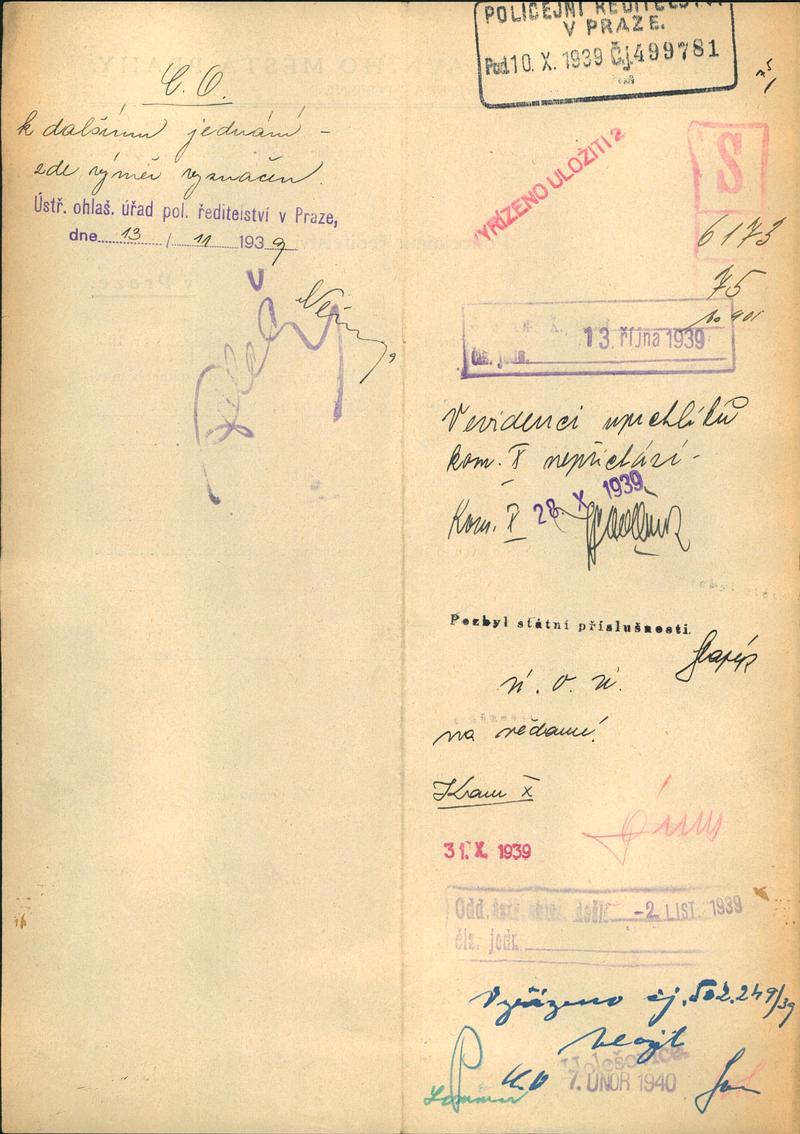 POLICEJNÍ ŘEDITELSTVÍ
V PRAZE.
Pod 10. X. 1939 Čj 499781
C. O.
k dalšímu jednání –
zde výměr vyznačen.
Ústř. ohlaš. úřad pol. ředitelství v Praze,
dne 13 / 11 1939
VYŘÍZENO ULOŽITI 2
S
6173
75
13. října 1939
čís. jedn.
V evidenci uprchlíků
kom. X nepřichází –
Kom. X 28. X 1939
Pozbyl státní příslušnosti.
na vědomí!
Kom X
31. X. 1939
Odd. došlo -2. LIST. 1939
čís. jedn.
Vyřízeno čj. 502.249/39
Uložit
Holešovice
7. ÚNOR 1940